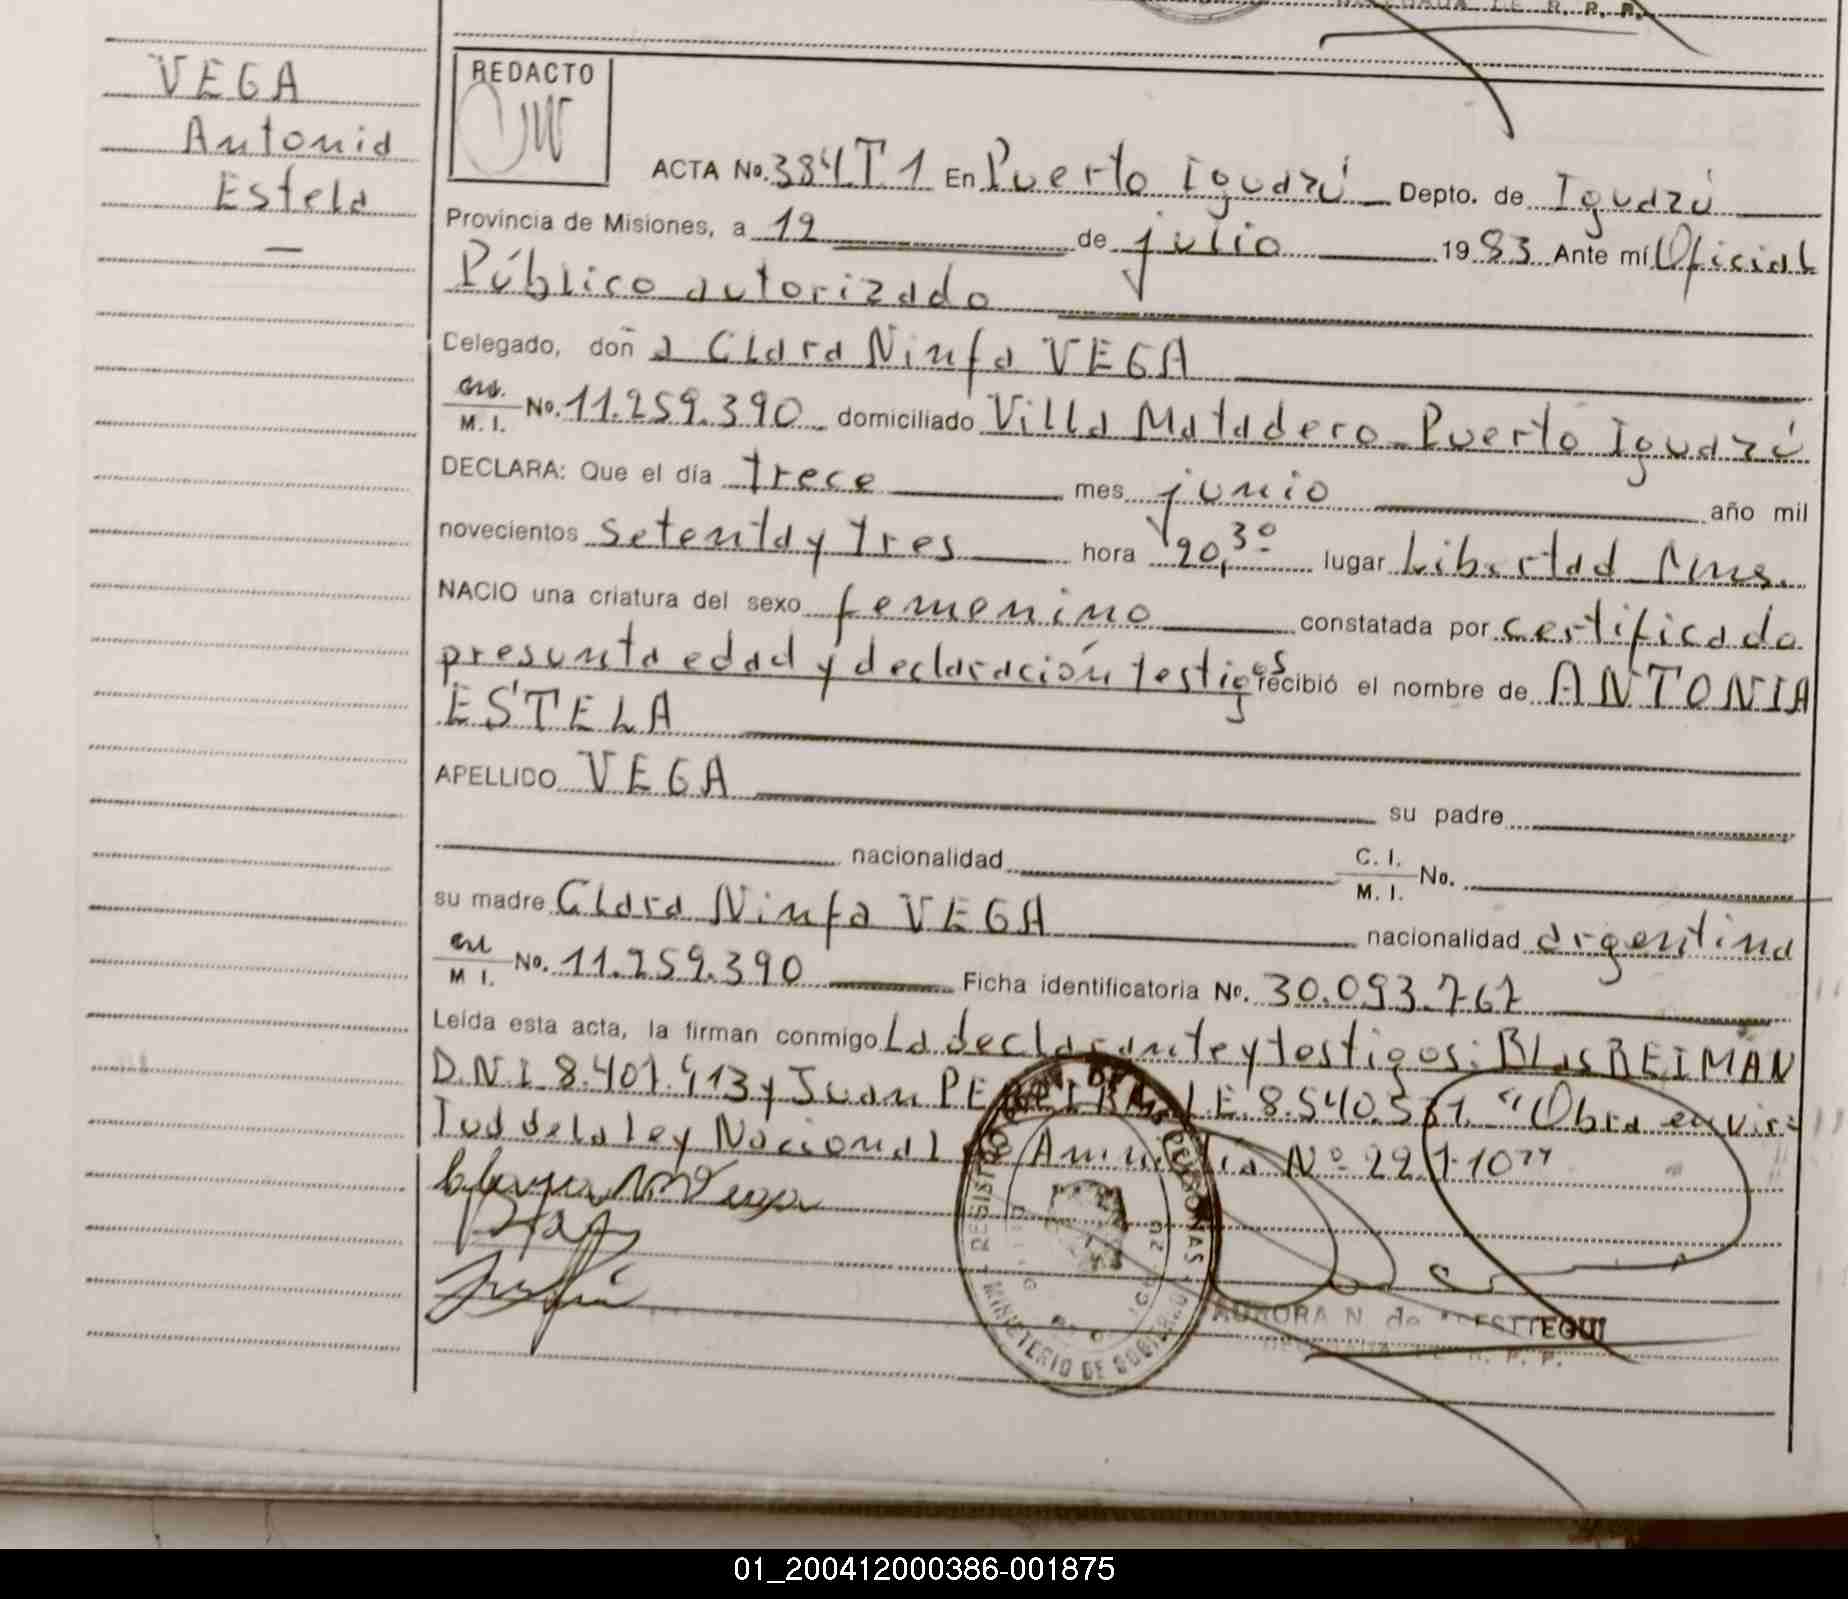 DELEGADA DE R. P. P.
VEGA
Antonia
Estela
REDACTO
ACTA No. 384 T. 1 En Puerto Iguazú Depto. de Iguazú
Provincia de Misiones, a 19 de julio 1983 Ante mí Oficial
Público autorizado
Delegado, doña Clara Ninfa VEGA
M. I. No. 11.259.390 domiciliado Villa Matadero Puerto Iguazú
DECLARA: Que el día trece mes junio año mil
novecientos setenta y tres hora 20,30 lugar Libertad Mnes.
NACIO una criatura del sexo femenino constatada por certificado
presunta edad y declaración testigos recibió el nombre de ANTONIA
ESTELA
APELLIDO VEGA su padre
nacionalidad C. I. M. I. No.
su madre Clara Ninfa VEGA nacionalidad argentina
M I. No. 11.259.390 Ficha identificatoria No. 30.093.767
Leída esta acta, la firman conmigo La declarante y testigos: BLas REIMAN
D.N.I. 8.407.413 y Juan L.E. 8.540.531. "Obra en vir=
tud de la ley Nacional de Amnistía Nº 22.1.10"
REGISTRO DE PERSONAS
MINISTERIO DE GOBIERNO
AURORA N. de
R. P. P.
01_200412000386-001875